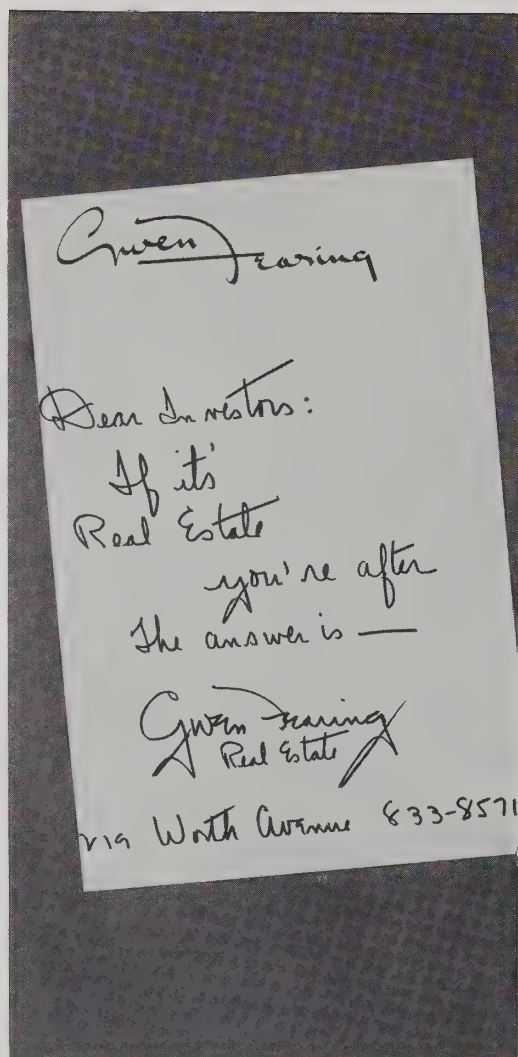 Gwen Fearing
Dear Investors:
If it's
Real Estate
you're after
The answer is —
Gwen Fearing
Real Estate
Worth Avenue 833-8571